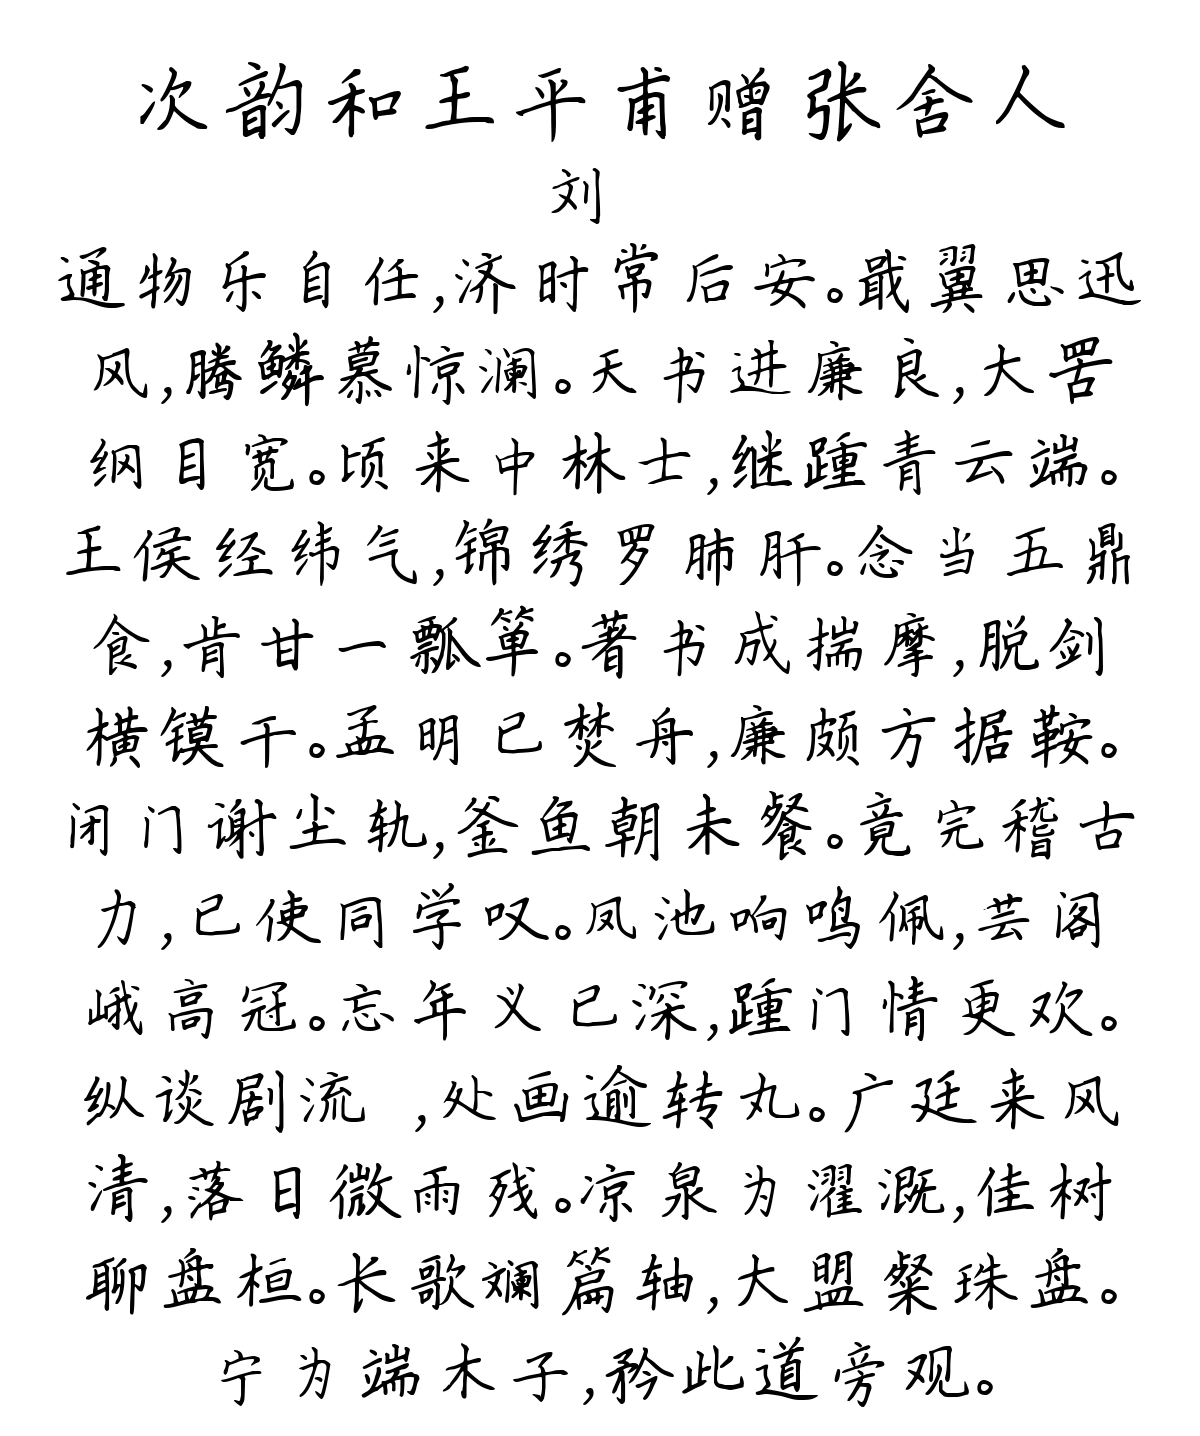 次韵和王平甫赠张舍人
刘
通物乐自任,济时常后安。戢翼思迅
风,腾鳞慕惊澜。天书进廉良,大罟
纲目宽。顷来中林士,继踵青云端。
王侯经纬气,锦绣罗肺肝。念当五鼎
食,肯甘一瓢箪。著书成揣摩,脱剑
横镆干。孟明已焚舟,廉颇方据鞍。
闭门谢尘轨,釜鱼朝未餐。竟完稽古
力,已使同学叹。凤池响鸣佩,芸阁
峨高冠。忘年义已深,踵门情更欢。
纵谈剧流 ,处画逾转丸。广廷来风
清,落日微雨残。凉泉为濯溉,佳树
聊盘桓。长歌斓篇轴,大盟粲珠盘。
宁为端木子,矜此道旁观。